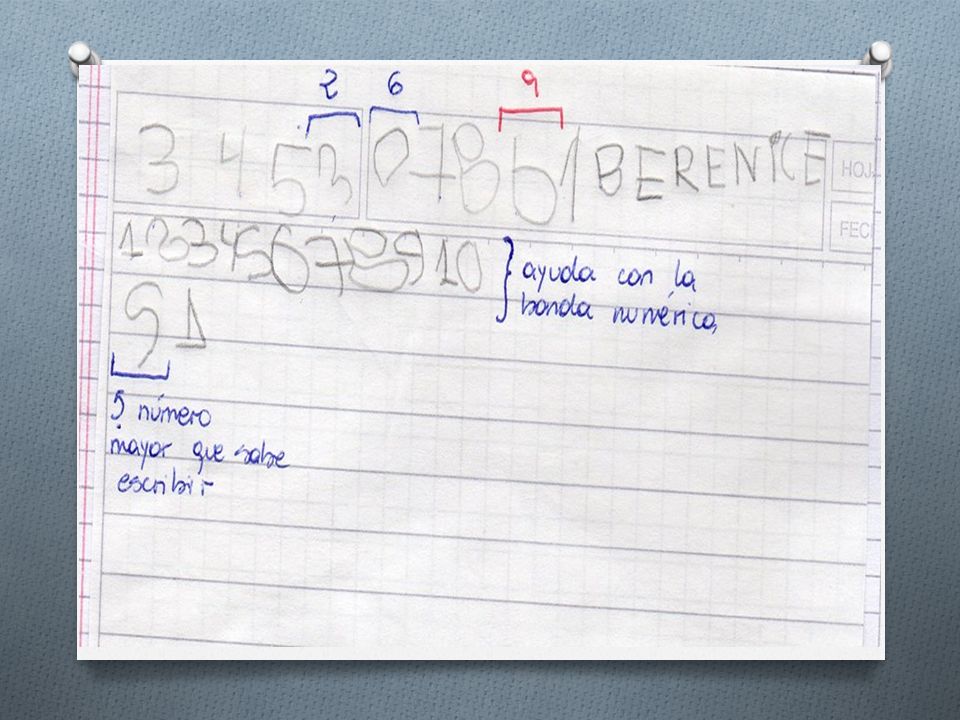 2 6 9
3 4 5 3 0 7 8 5 1 BERENICE
HOJA
1 2 3 4 5 6 7 8 9 10
FECH
} ayuda con la
banda numérica
9 1
5 número
mayor que sabe
escribir